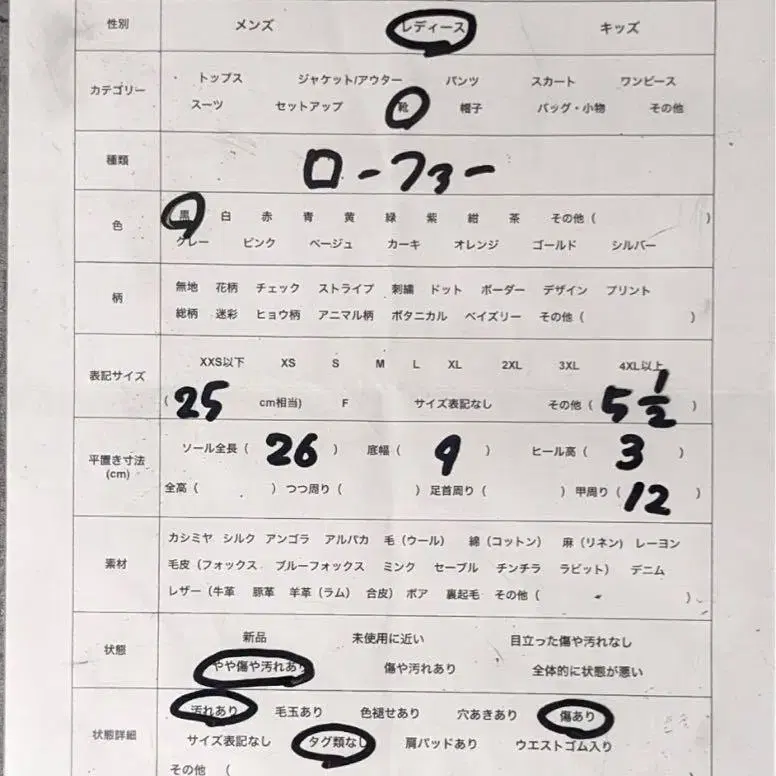 性別 メンズ レディース キッズ
カテゴリー トップス ジャケット/アウター パンツ スカート ワンピース
スーツ セットアップ 靴 帽子 バッグ・小物 その他
種類 ローファー
色 黒 白 赤 青 黄 緑 紫 紺 茶 その他 ( )
グレー ピンク ベージュ カーキ オレンジ ゴールド シルバー
柄 無地 花柄 チェック ストライプ 刺繍 ドット ボーダー デザイン プリント
総柄 迷彩 ヒョウ柄 アニマル柄 ボタニカル ペイズリー その他 ( )
表記サイズ XXS以下 XS S M L XL 2XL 3XL 4XL以上
( 25 cm相当) F サイズ表記なし その他 ( 5 1/2 )
平置き寸法 (cm) ソール全長 ( 26 ) 底幅 ( 9 ) ヒール高 ( 3 )
全高 ( ) つつ周り ( ) 足首周り ( ) 甲周り ( 12 )
素材 カシミヤ シルク アンゴラ アルパカ 毛 (ウール) 綿 (コットン) 麻 (リネン) レーヨン
毛皮 (フォックス ブルーフォックス ミンク セーブル チンチラ ラビット) デニム
レザー (牛革 豚革 羊革 (ラム) 合皮) ボア 裏起毛 その他 ( )
状態 新品 未使用に近い 目立った傷や汚れなし
やや傷や汚れあり 傷や汚れあり 全体的に状態が悪い
状態詳細 汚れあり 毛玉あり 色褪せあり 穴あきあり 傷あり
サイズ表記なし タグ類なし 肩パッドあり ウエストゴム入り
その他 (